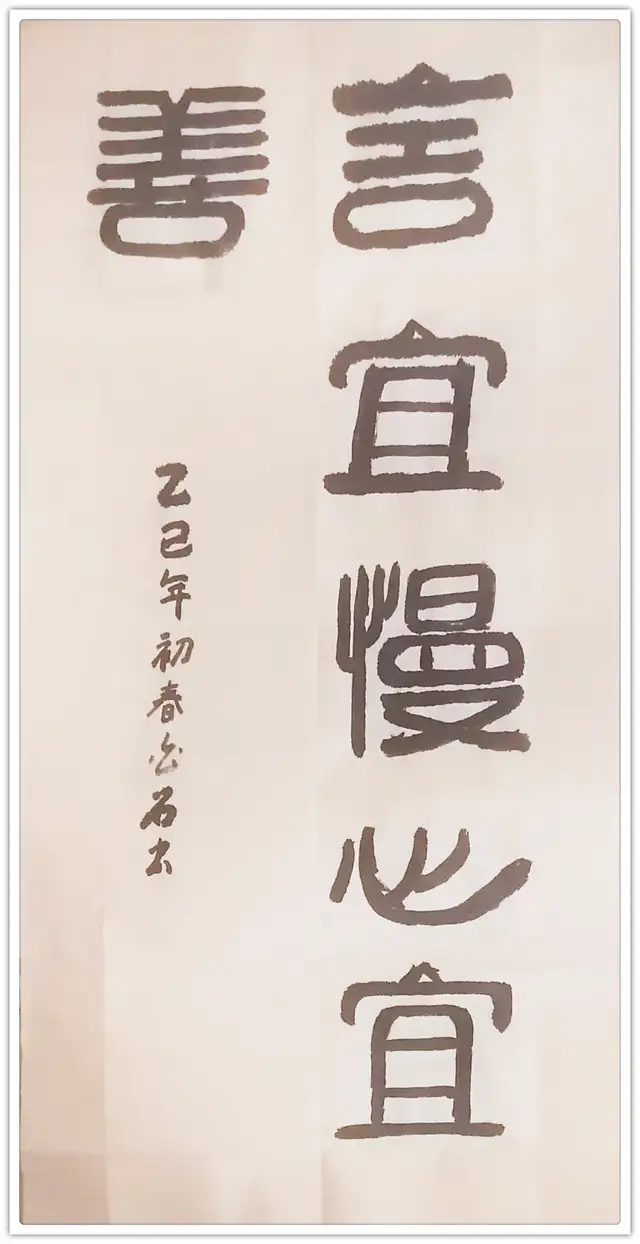 言宜慢心宜
善
乙巳年初春金石书